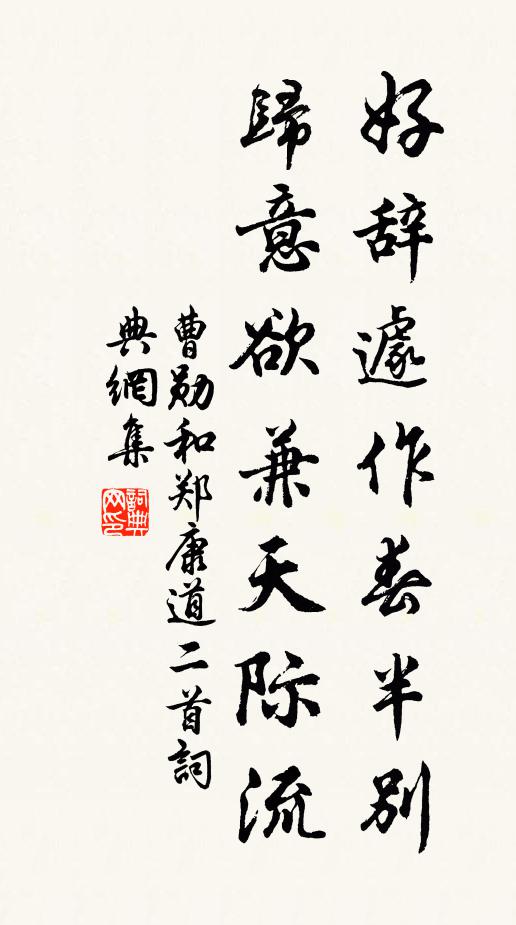 好辞遽作春半别
歸意欲兼天际流
曹勛和郑康道二首詞
典網集
詞典网印